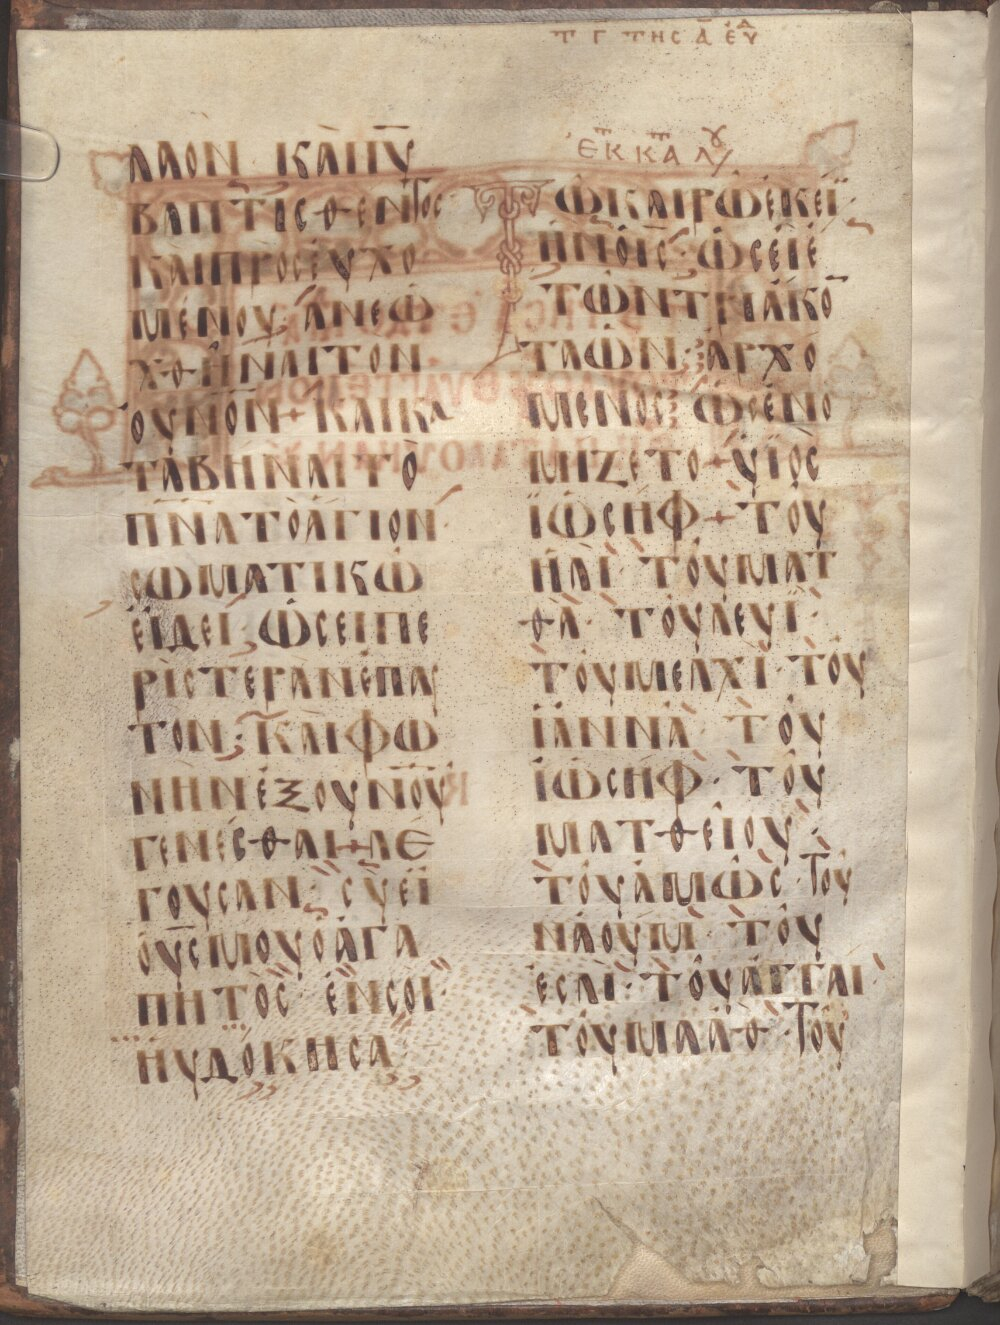 Τ Γ ΤΗС Α ΕΥ
ΛΑΟΝ ΚΑΙΙΥ
ΒΑΠΤΙСΘΕΝΤΟС
ΚΑΙΠΡΟСΕΥΧΟ
ΜΕΝΟΥ ΑΝΕΩ
ΧΘΗΝΑΙΤΟΝ
ΟΥΝΟΝ+ΚΑΙΚΑ
ΤΑΒΗΝΑΙΤΟ
ΠΝΑΤΟΑΓΙΟΝ
СΩΜΑΤΙΚΩ
ΕΙΔΕΙ ΩСΕΙΠΕ
ΡΙСΤΕΡΑΝΕΠΑΥ
ΤΟΝ· ΚΑΙΦΩ
ΝΗΝΕΞΟΥΝΟΥ
ΓΕΝΕСΘΑΙ+ΛΕ
ΓΟΥСΑΝ· СΥΕΙ
ΟΥСΜΟΥΟΑΓΑ
ΠΗΤΟС ΕΝСΟΙ·
ΗΥΔΟΚΗСΑ
ΕΚ ΚΑΛΟΥ
ΤΩΚΑΙΡΩΕΚΕΙ
ΗΝΟΙС ΩСΕΙΕ
ΤΩΝΤΡΙΑΚΟ
ΤΑΩΝ· ΑΡΧΟ
ΜΕΝΟС ΩСΕΝΟ
ΜΙΖΕΤΟ+ΥΙΟС
ΙΩСΗΦ+ΤΟΥ
ΗΛΙ· ΤΟΥΜΑΤ
ΘΑ· ΤΟΥΛΕΥΙ·
ΤΟΥΜΕΛΧΙ·ΤΟΥ
ΙΑΝΝΑ· ΤΟΥ
ΙΩСΗΦ· ΤΟΥ
ΜΑΤΘΕΙΟΥ·
ΤΟΥΑΜΩС·ΤΟΥ
ΝΑΟΥΜ· ΤΟΥ
ΕСΛΙ· ΤΟΥΑΓΓΑΙ·
ΤΟΥΜΑΑΘ·ΤΟΥ